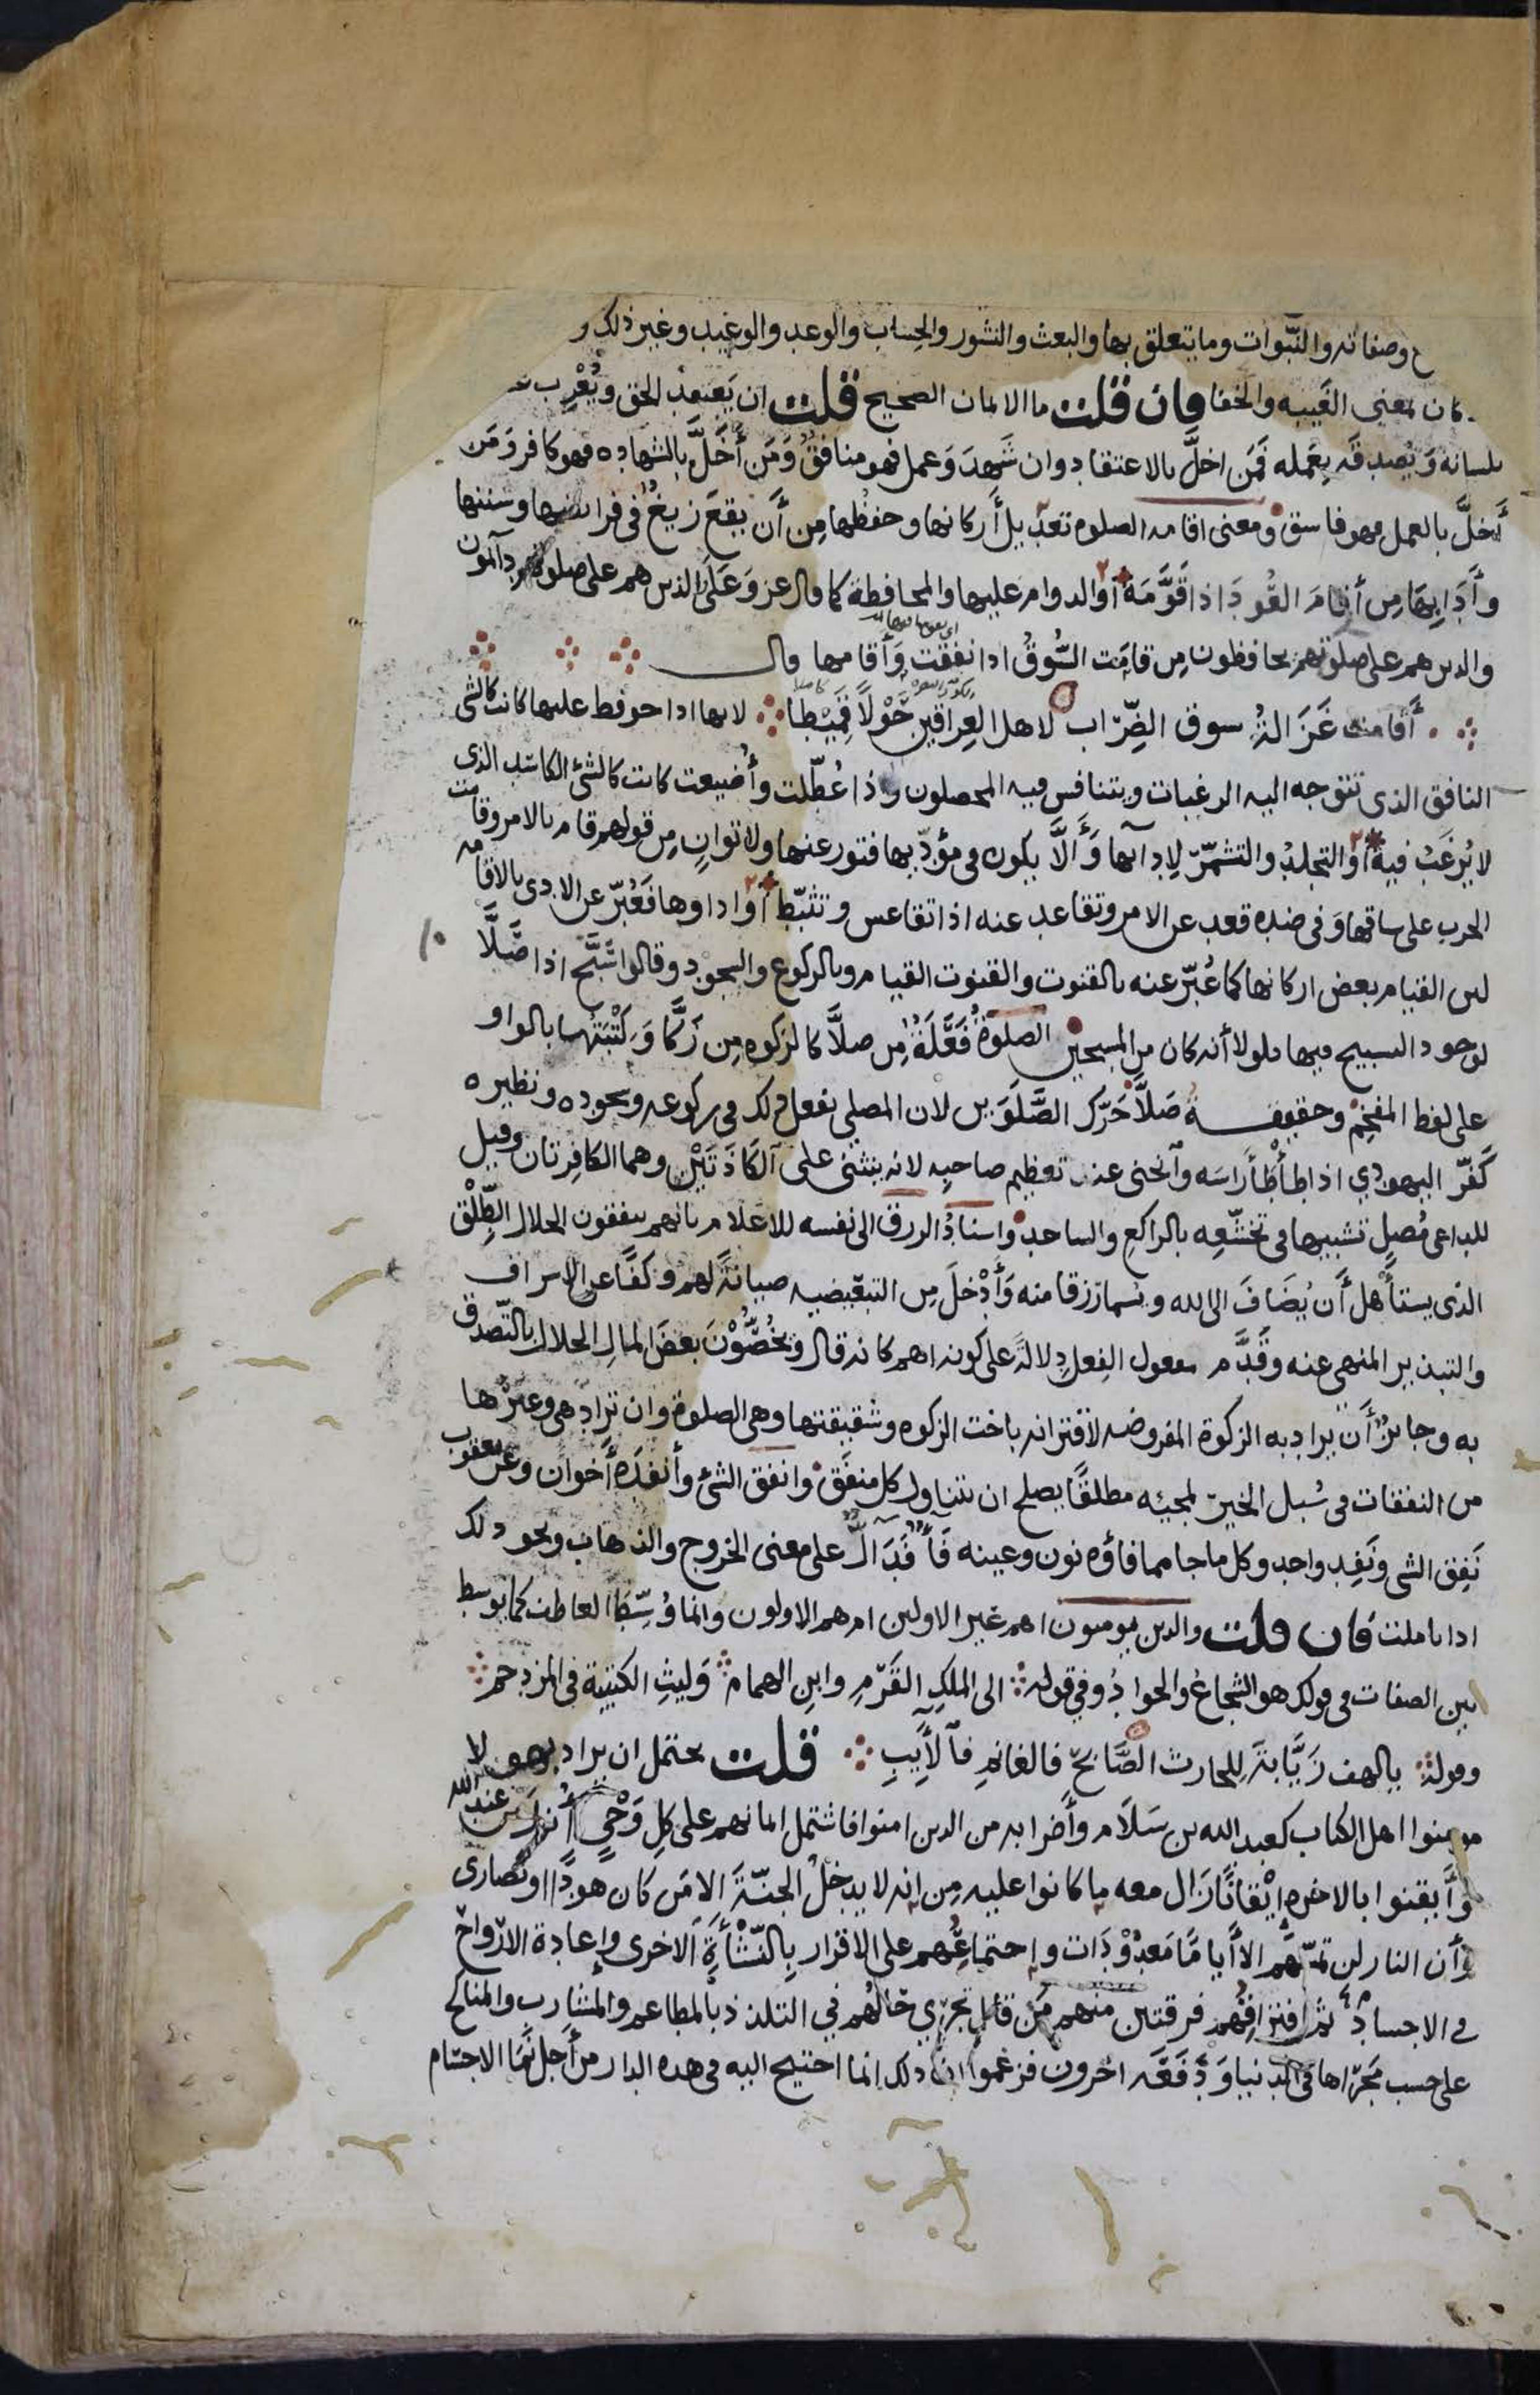 وصفاته والنبوات وما يتعلق بها والبعث والنشور والحساب والوعد والوعيد وغير ذلك و
كان بمعنى الغيبه والخفا فان قلت ما الايمان الصحيح قلت ان يعتقد الحق ويعرب عنه
بلسانه ويصدقه بعمله فمن اخلّ بالاعتقاد وان شهد وعمل فهو منافق ومن أخلّ بالشهاده فهو كافر ومن
أخلّ بالعمل فهو فاسق ومعنى اقامه الصلوه تعديل أركانها وحفظها من أن يقع زيغ في فرائضها وسننها
وآدابها من أقام العود اذا قوّمه أو الدوام عليها والمحافظة كما قال عز وعلا الذين هم على صلوتهم دآئمون
والذين هم على صلوتهم يحافظون من قامت السُّوق اذا نفقت وأقامها قال
أقامت غزالة سوق الضِّرّاب لاهل العراقين حَوْلًا قَمِيْطا لانها اذا حوفظ عليها كانت كالشى
النافق الذى تتوجه اليه الرغبات ويتنافس فيه المحصلون واذا عُطّلت وأُضيعت كانت كالشئ الكاسد الذى
لا يُرغَبُ فيه أو التجلد والتشمّر لادآئها وألّا يكون فى مؤدّيها فتور عنها ولا توانٍ من قولهم قام بالامر وقامت
الحرب على ساقها وفى ضده قعد عن الامر وتقاعد عنه اذا تقاعس وتثبّط أو اداؤها فعُبّر عن الادى بالاقامه
لان القيام بعض اركانها كما عُبّر عنه بالقنوت والقنوت القيام وبالركوع والسجود وقالوا سَبّح اذا صلّا
لوجود التسبيح فيها فلولا أنه كان من المسبحين الصلوة فَعَلَة من صلّا كالزكوه من زكّا وكتبتها بالواو
على لفظ المفخم وحقيقة صلّا حرّك الصَّلَوَين لان المصلى يفعل ذلك فى ركوعه وسجوده ونظيره
كفّر اليهودي اذا طأطأ راسه وآنحنى عند تعظيم صاحبه لانه ينثنى على آلكاذتين وهما الكافرتان وقيل
للداعى مُصل تشبيها فى تخشّعه بالراكع والساجد واسناد الرزق الى نفسه للاعلام بانهم ينفقون الحلال الطِّلْق
الذى يستأهل أن يُضاف الى الله ويسمّا رزقا منه وأدْخل من التبعيضيه صيانةً لهم وكفًّا عن الاسراف
والتبذير المنهى عنه وقدّم مفعول الفعل دلالةً على كونه اهم كانه قال ويخصّون بعض المال الحلال بالتّصدق
به وجائز أن يراد به الزكوة المفروضه لاقترانه باخت الزكوه وشقيقتها وهى الصلوة وان تراد هى وغيرها
من النفقات فى سُبل الخير لمجيئه مطلقًا يصلح ان يتناول كل منفَق وانفق الشئ وأنفده أخوان وعن يعقوب
نَفِق الشى ونَفِد واحد وكل ما جا مما فاؤه نون وعينه فآء فدالّ على معنى الخروج والذهاب ونحو ذلك
اذا تاملت فان قلت والذين يومنون اهم غير الاولين ام هم الاولون وانما وُسّط العاطف كما يوسط
بين الصفات فى قولك هو الشجاع والجواد وفي قوله الى الملكِ القَرْمِ وابنِ الهمام وليثِ الكتيبة فى المزدحم
وقوله يالهف زيّابة للحارث الصَّابح فالغانم فآلأيبِ قلت يحتمل ان يراد بهولا
مومنوا اهل الكتاب كعبد الله بن سَلَام وأضرابه من الذين امنوا فاشتمل ايمانهم على كل وَحْيٍ أُنزل من عند الله
وأيقنوا بالاخره إيقانًا زال معه ما كانوا عليه من انه لا يدخل الجنّة الا من كان هودًا او نصارى
وأن النار لن تمسّهم الا أيامًا معدُوْدَات واجتماعُهم على الاقرار بالنّشأة الاخرى واعادة الارواح
فى الاجساد ثم افتراقهم فرقتين منهم من قال تجري حالهم في التلذذ بالمطاعم والمشارب والمناكح
على حسب مجراها فى الدنيا ودفعه اخرون فزعموا ان ذلك انما احتيج اليه فى هذه الدار من أجل نما الاجسام